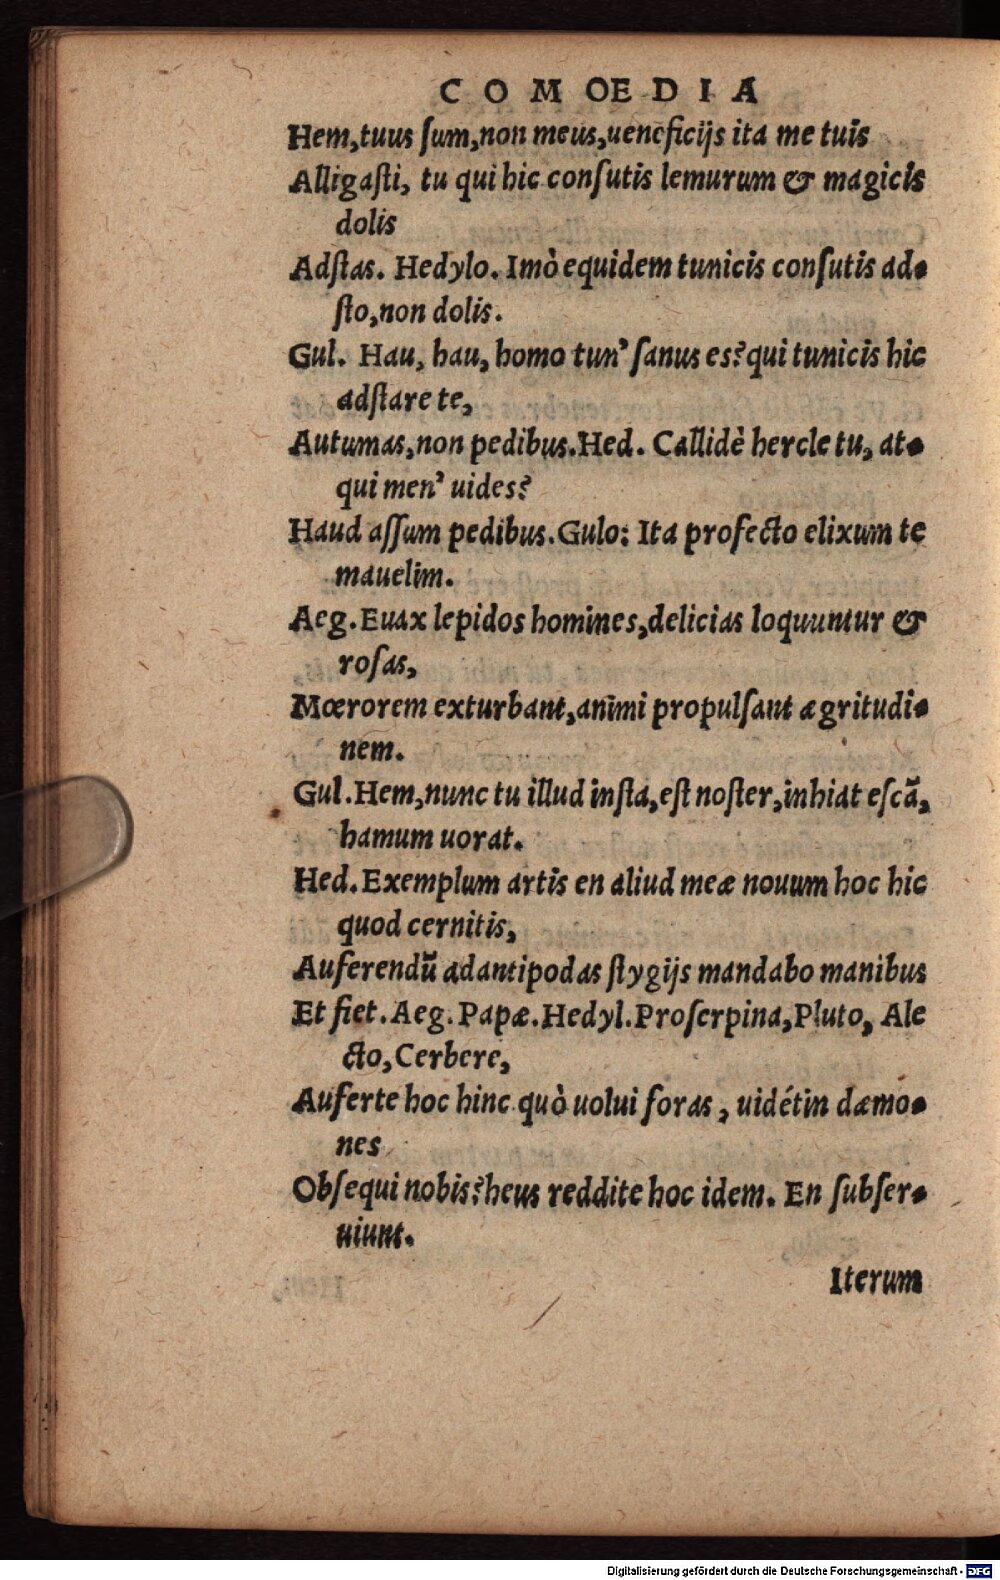 COMOEDIA
Hem,tuus ſum,non meus,ueneficijs ita me tuis
Alligaſti, tu qui hic conſutis lemurum & magicis
dolis
Adſtas. Hedylo. Imò equidem tunicis conſutis ad-
ſto,non dolis.
Gul. Hau, hau, homo tun' ſanus es? qui tunicis hic
adſtare te,
Autumas,non pedibus.Hed. Callidè hercle tu, at-
qui men' uides?
Haud aſſum pedibus.Gulo: Ita profecto elixum te
mauelim.
Aeg.Euax lepidos homines,delicias loquuntur &
roſas,
Mœrorem exturbant,animi propulſant ægritudi-
nem.
Gul.Hem,nunc tu illud inſta,eſt noſter,inhiat eſcã,
hamum uorat.
Hed.Exemplum artis en aliud meæ nouum hoc hic
quod cernitis,
Auferendũ ad antipodas ſtygijs mandabo manibus
Et fiet.Aeg.Papæ.Hedyl.Proſerpina,Pluto, Ale
cto,Cerbere,
Auferte hoc hinc quò uolui foras, uidétin dæmo-
nes
Obſequi nobis?heus reddite hoc idem. En ſubſer-
uiunt.
Iterum
Digitalisierung gefördert durch die Deutsche Forschungsgemeinschaft - DFG